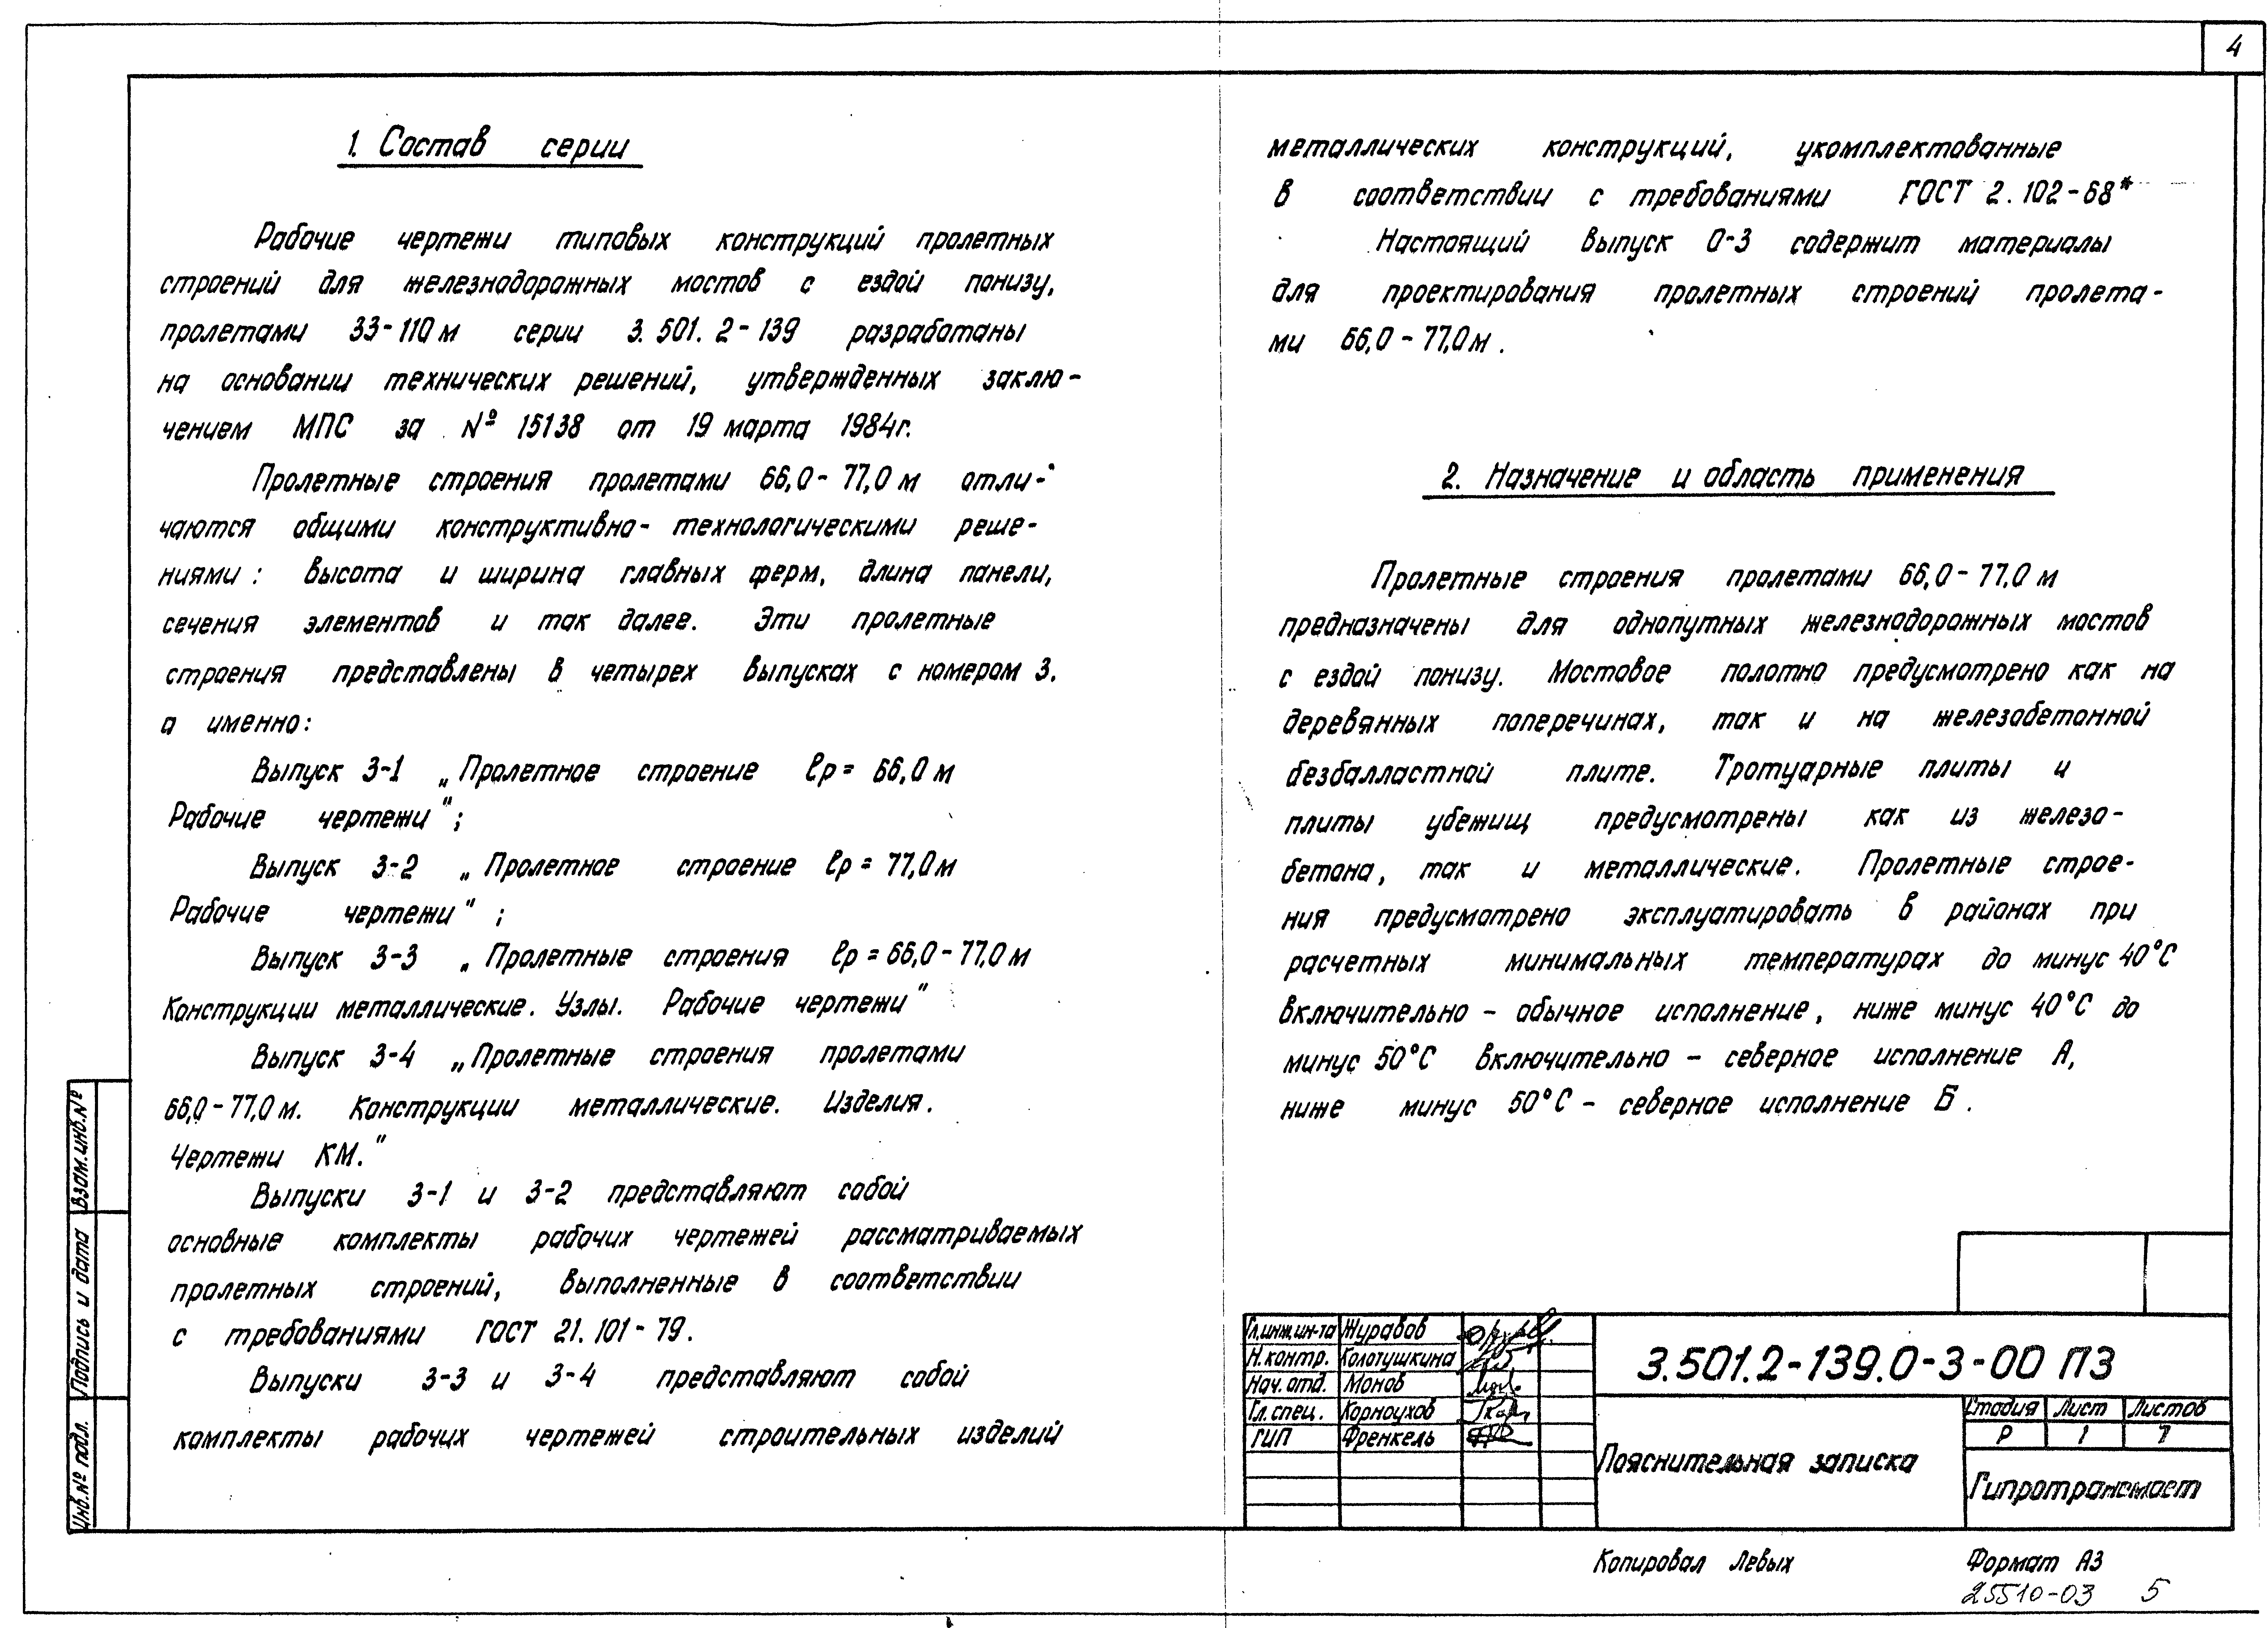 4
1. Состав серии
Рабочие чертежи типовых конструкций пролетных
строений для железнодорожных мостов с ездой понизу,
пролетами 33-110 м серии 3.501.2-139 разработаны
на основании технических решений, утвержденных заклю-
чением МПС за № 15138 от 19 марта 1984г.
Пролетные строения пролетами 66,0-77,0 м отли-
чаются общими конструктивно-технологическими реше-
ниями: высота и ширина главных ферм, длина панели,
сечения элементов и так далее. Эти пролетные
строения представлены в четырех выпусках с номером 3.
а именно:
Выпуск 3-1 „Пролетное строение ℓр = 66,0 м
Рабочие чертежи";
Выпуск 3-2 „Пролетное строение ℓр = 77,0 м
Рабочие чертежи";
Выпуск 3-3 „Пролетные строения ℓр = 66,0-77,0 м
Конструкции металлические. Узлы. Рабочие чертежи"
Выпуск 3-4 „Пролетные строения пролетами
66,0-77,0 м. Конструкции металлические. Изделия.
Чертежи КМ."
Выпуски 3-1 и 3-2 представляют собой
основные комплекты рабочих чертежей рассматриваемых
пролетных строений, выполненные в соответствии
с требованиями ГОСТ 21.101-79.
Выпуски 3-3 и 3-4 представляют собой
комплекты рабочих чертежей строительных изделий
металлических конструкций, укомплектованные
в соответствии с требованиями ГОСТ 2.102-68*
Настоящий выпуск 0-3 содержит материалы
для проектирования пролетных строений пролета-
ми 66,0-77,0 м.
2. Назначение и область применения
Пролетные строения пролетами 66,0-77,0 м
предназначены для однопутных железнодорожных мостов
с ездой понизу. Мостовое полотно предусмотрено как на
деревянных поперечинах, так и на железобетонной
безбалластной плите. Тротуарные плиты и
плиты убежищ предусмотрены как из железо-
бетона, так и металлические. Пролетные строе-
ния предусмотрено эксплуатировать в районах при
расчетных минимальных температурах до минус 40°С
включительно - обычное исполнение, ниже минус 40°С до
минус 50°С включительно - северное исполнение А,
ниже минус 50°С - северное исполнение Б.
Взам.инв.№
Подпись и дата
Инв.№ подл.
Гл.инж.ин-та Журавов
Н.контр. Колотушкина
Нач. отд. Монов
Гл. спец. Корноухов
ГИП Френкель
3.501.2-139.0-3-00 ПЗ
Пояснительная записка
Стадия Лист Листов
Р 1 7
Гипротрансмост
Копировал Левых
Формат А3
25510-03 5